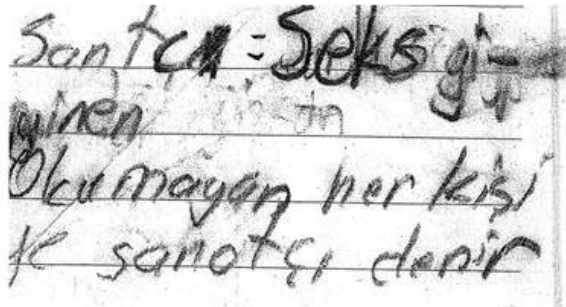 Santcı = Seksi gi-
yinen
Okumayan her kişi
ye sanatçı denir